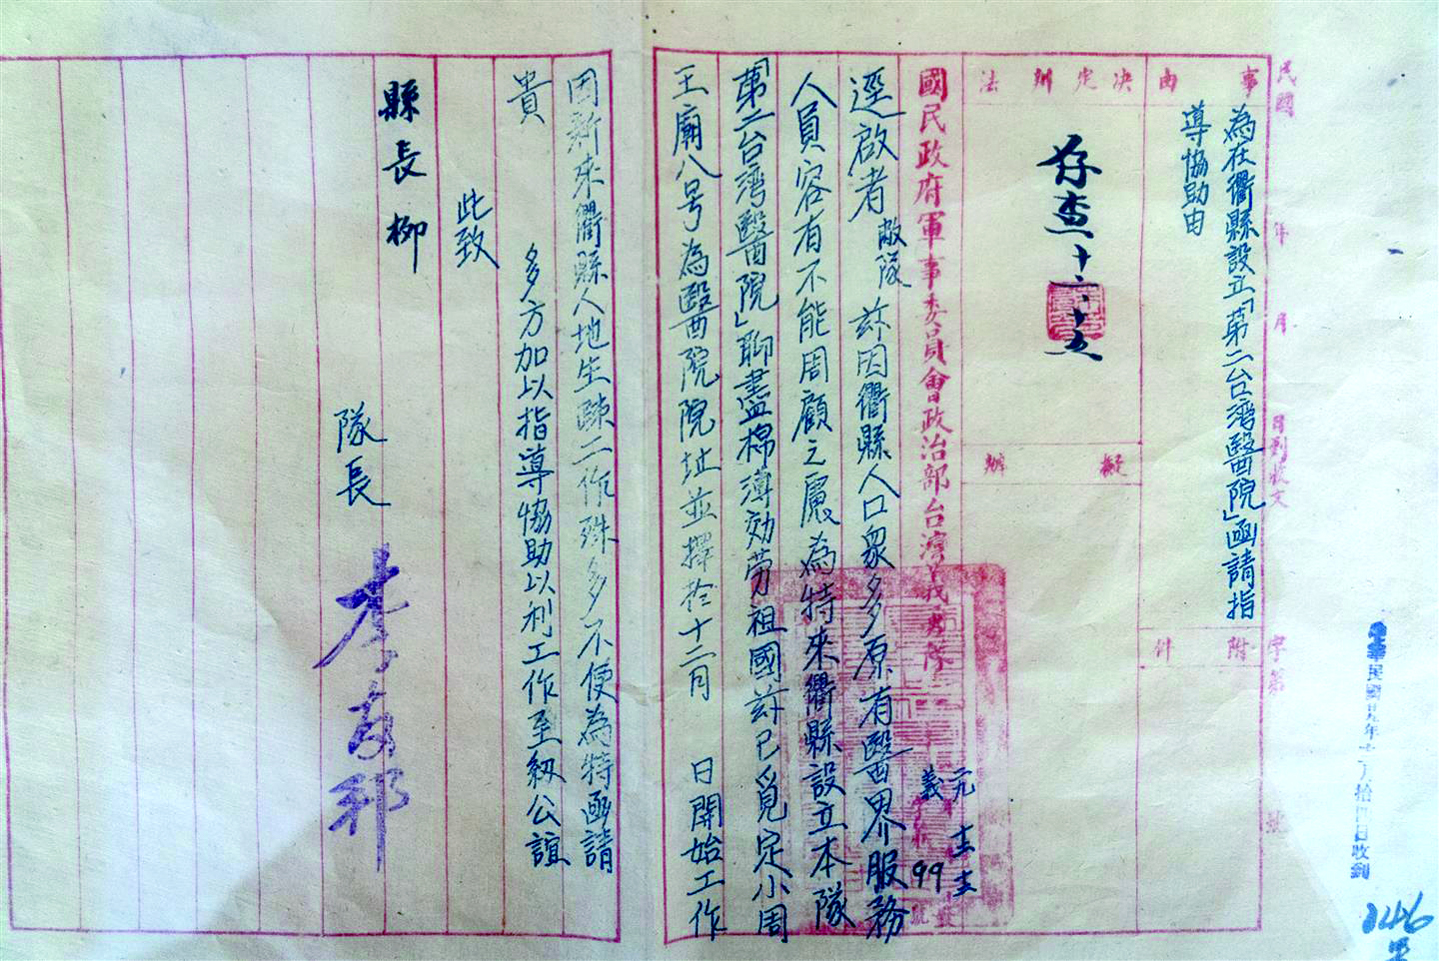 民國 年 月 日到收文 字第 號
事由
為在衢縣設立「第二台灣醫院」函請指
導協助由
附件
決定辦法
存查十二、十五
擬辦
國民政府軍事委員會政治部台灣義勇隊
義字第 99 號
逕啟者敝隊茲因衢縣人口眾多原有醫界服務
人員容有不能周顧之慮為特來衢縣設立本隊
「第二台灣醫院」聊盡棉薄効劳祖國茲已覓定小周
王廟八号為醫院院址並擇於十二月 日開始工作
因新來衢縣人地生疎工作殊多不便為特函請
貴
多方加以指導協助以利工作至級公誼
此致
縣長柳
隊長 李友邦
中華民國廿九年十二月拾四日收到
146